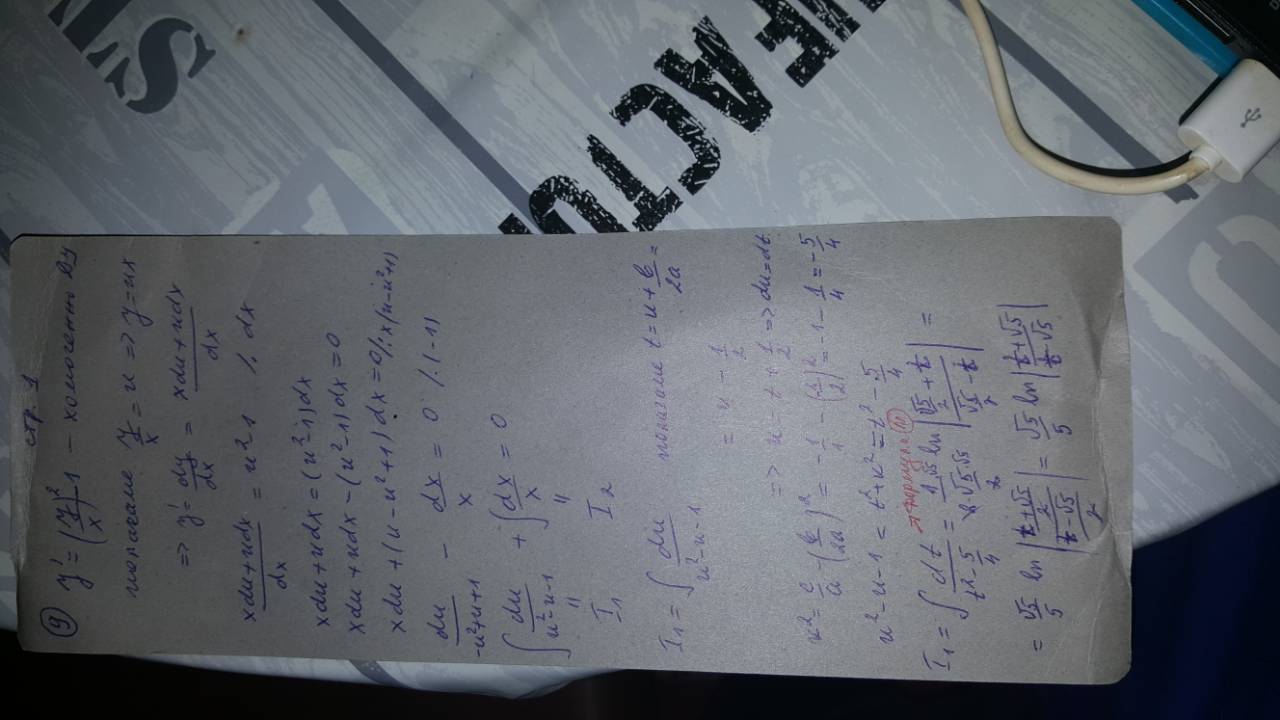 стр. 1
⑨ y' = (y/x)² - 1 – хомогенно ДУ
полагаме y/x = u => y = ux
=> y' = dy/dx = (xdu + udx)/dx
(xdu + udx)/dx = u² - 1 /. dx
xdu + udx = (u² - 1)dx
xdu + udx - (u² - 1)dx = 0
xdu + (u - u² + 1) dx = 0 /: x(u - u² + 1)
du/(-u² + u + 1) - dx/x = 0 /.(-1)
∫ du/(u² - u - 1) + ∫ dx/x = 0
" "
I₁ I₂
I₁ = ∫ du/(u² - u - 1) полагаме t = u + b/2a =
= u - 1/2
=> u = t + 1/2 => du = dt
k² = c/a - (b/2a)² = -1/1 - (1/2)² = -1 - 1/4 = -5/4
u² - u - 1 = t² + k² = t² - 5/4
формула 11
I₁ = ∫ dt/(t² - 5/4) = 1.√5/(2.√5/2.√5) ln |(√5/2 + t)/(√5/2 - t)| =
= √5/5 ln |((t + √5)/2)/((t - √5)/2)| = √5/5 ln |(t + √5)/(t - √5)|
ST
FACTU